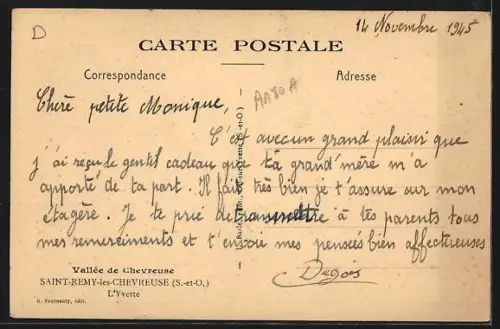 D
14 Novembre 1945
CARTE POSTALE
Correspondance
Adresse
A280A
Chère petite Monique,
C'est avec un grand plaisir que
j'ai reçu le gentil cadeau que ta grand'mère m'a
apporté de ta part. Il fait très bien je t'assure sur mon
étagère. Je te prie de transmettre à tes parents tous
mes remerciments et t'envoie mes pensées bien affectueuses
Degois
Vallée de Chevreuse
SAINT-REMY-les-CHEVREUSE (S.-et-O.)
L'Yvette
édit.